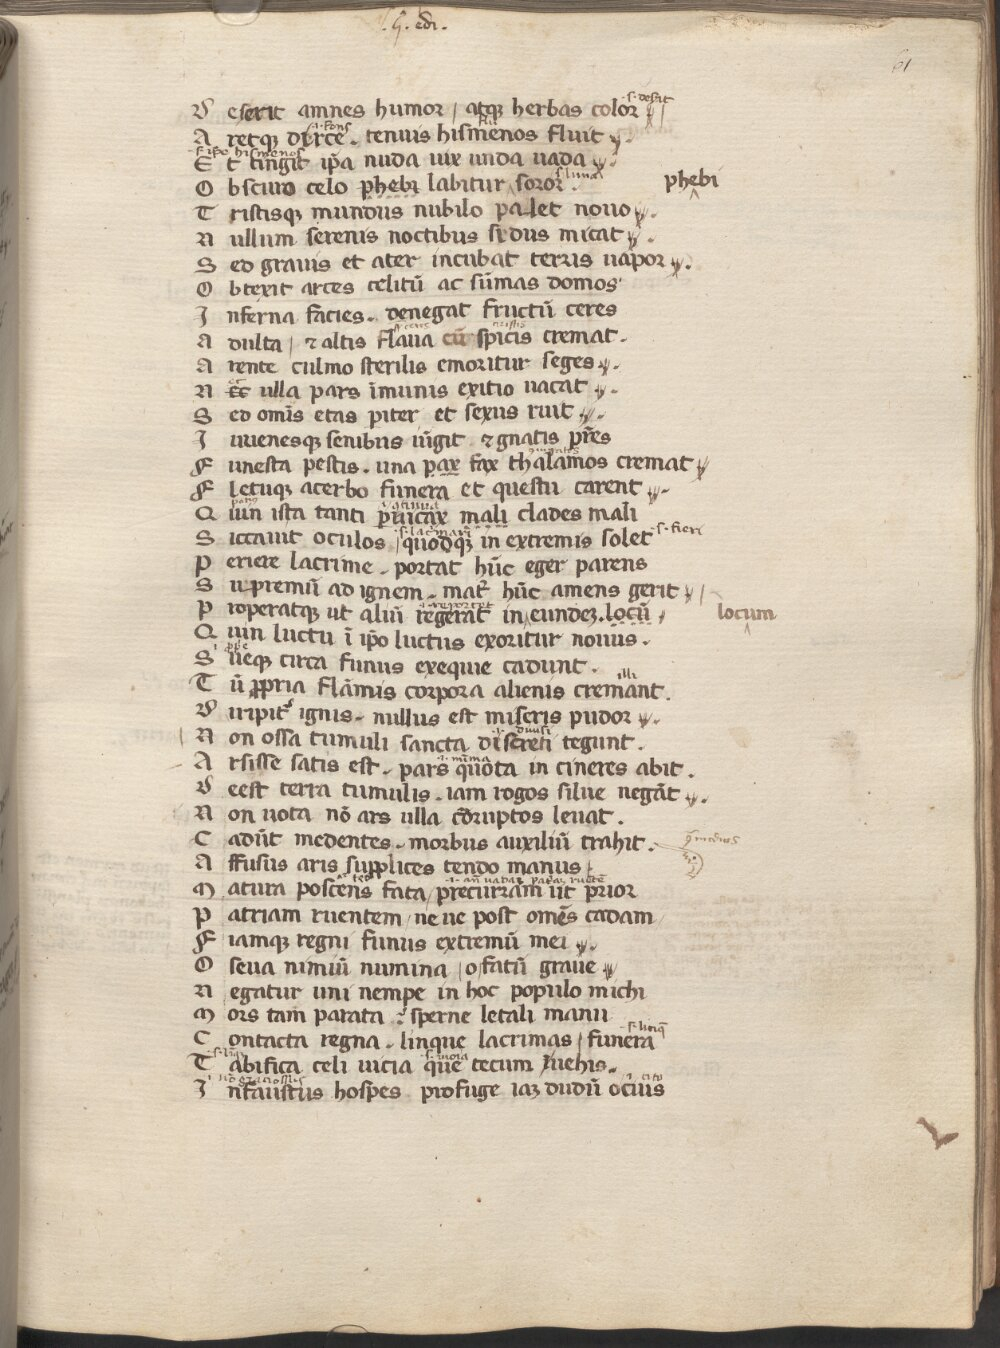 .G. edi.
61
D eserit amnes humor / atqꝫ herbas color
A retqꝫ dyrce. tenuis hismenos fluit
E t tingit ip̃a nuda uix unda uada
O bscuro celo phebi labitur soror. phebi
T ristisqꝫ mundus nubilo pallet nouo
N ullum serenis noctibus sydus micat
S ed grauis et ater incubat terris uapor
O btexit arces celitũ ac sũmas domos
I nferna facies. denegat fructũ ceres
A dulta / ⁊ altis flaua cũ spicis cremat.
A rente culmo sterilis emoritur seges
N ec ulla pars ĩmunis exitio uacat
S ed omĩs etas piter et sexus ruit
I uuenesqꝫ senibus iũgit ⁊ gnatis pr̃es
F unesta pestis. una pax fax thalamos cremat
F letuqꝫ acerbo funera et questu carent
Q uin ista tanti pĩuicax mali clades mali
S iccauit oculos / quodqꝫ in extremis solet
P eriere lacrime. portat hũc eger parens
S upremũ ad ignem. mat̃ hũc amens gerit
P roperatqꝫ ut aliũ regerat in eundeꝫ locũ / locum
Q uin luctu ĩ ip̃o luctus exoritur nouus.
S ueqꝫ circa funus exequie cadunt.
T ũ ꝓpria flãmis corpora alienis cremant.
D iripit᷑ ignis. nullus est miseris pudor
N on ossa tumuli sancta discreti tegunt.
A rsisse satis est. pars quota in cineres abit.
D eest terra tumulis. iam rogos silue negãt
N on uota nõ ars ulla cõrruptos leuat.
C adũt medentes. morbus auxiliũ trahit.
A ffusus aris supplices tendo manus
M atura poscens fata / precurram ut prior
P atriam ruentem / ne ue post omẽs cadam
F iamqꝫ regni funus extremũ mei
O seua nimiũ numina / o fatũ graue
N egatur uni nempe in hoc populo michi
M ors tam parata ⁊ sperne letali manu
C ontacta regna. linque lacrimas / funera
T abifica celi uicia que tecum inuehis.
I nfaustus hospes profuge iaꝫ dudũ ocius